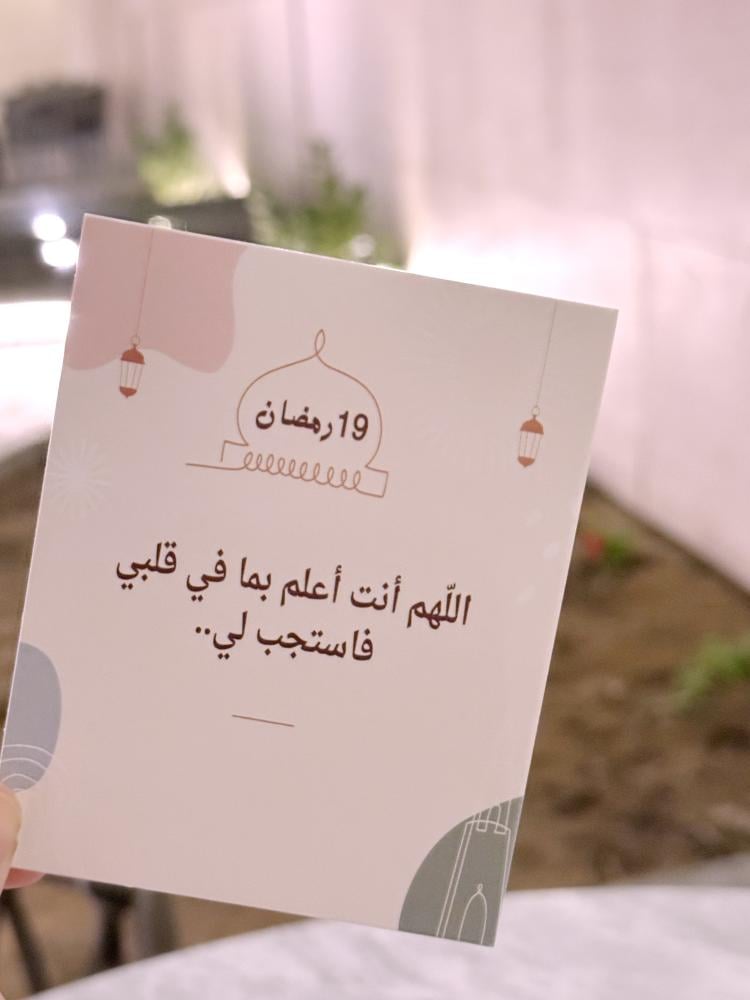 19 رمضان
اللّهم أنت أعلم بما في قلبي
فاستجب لي..